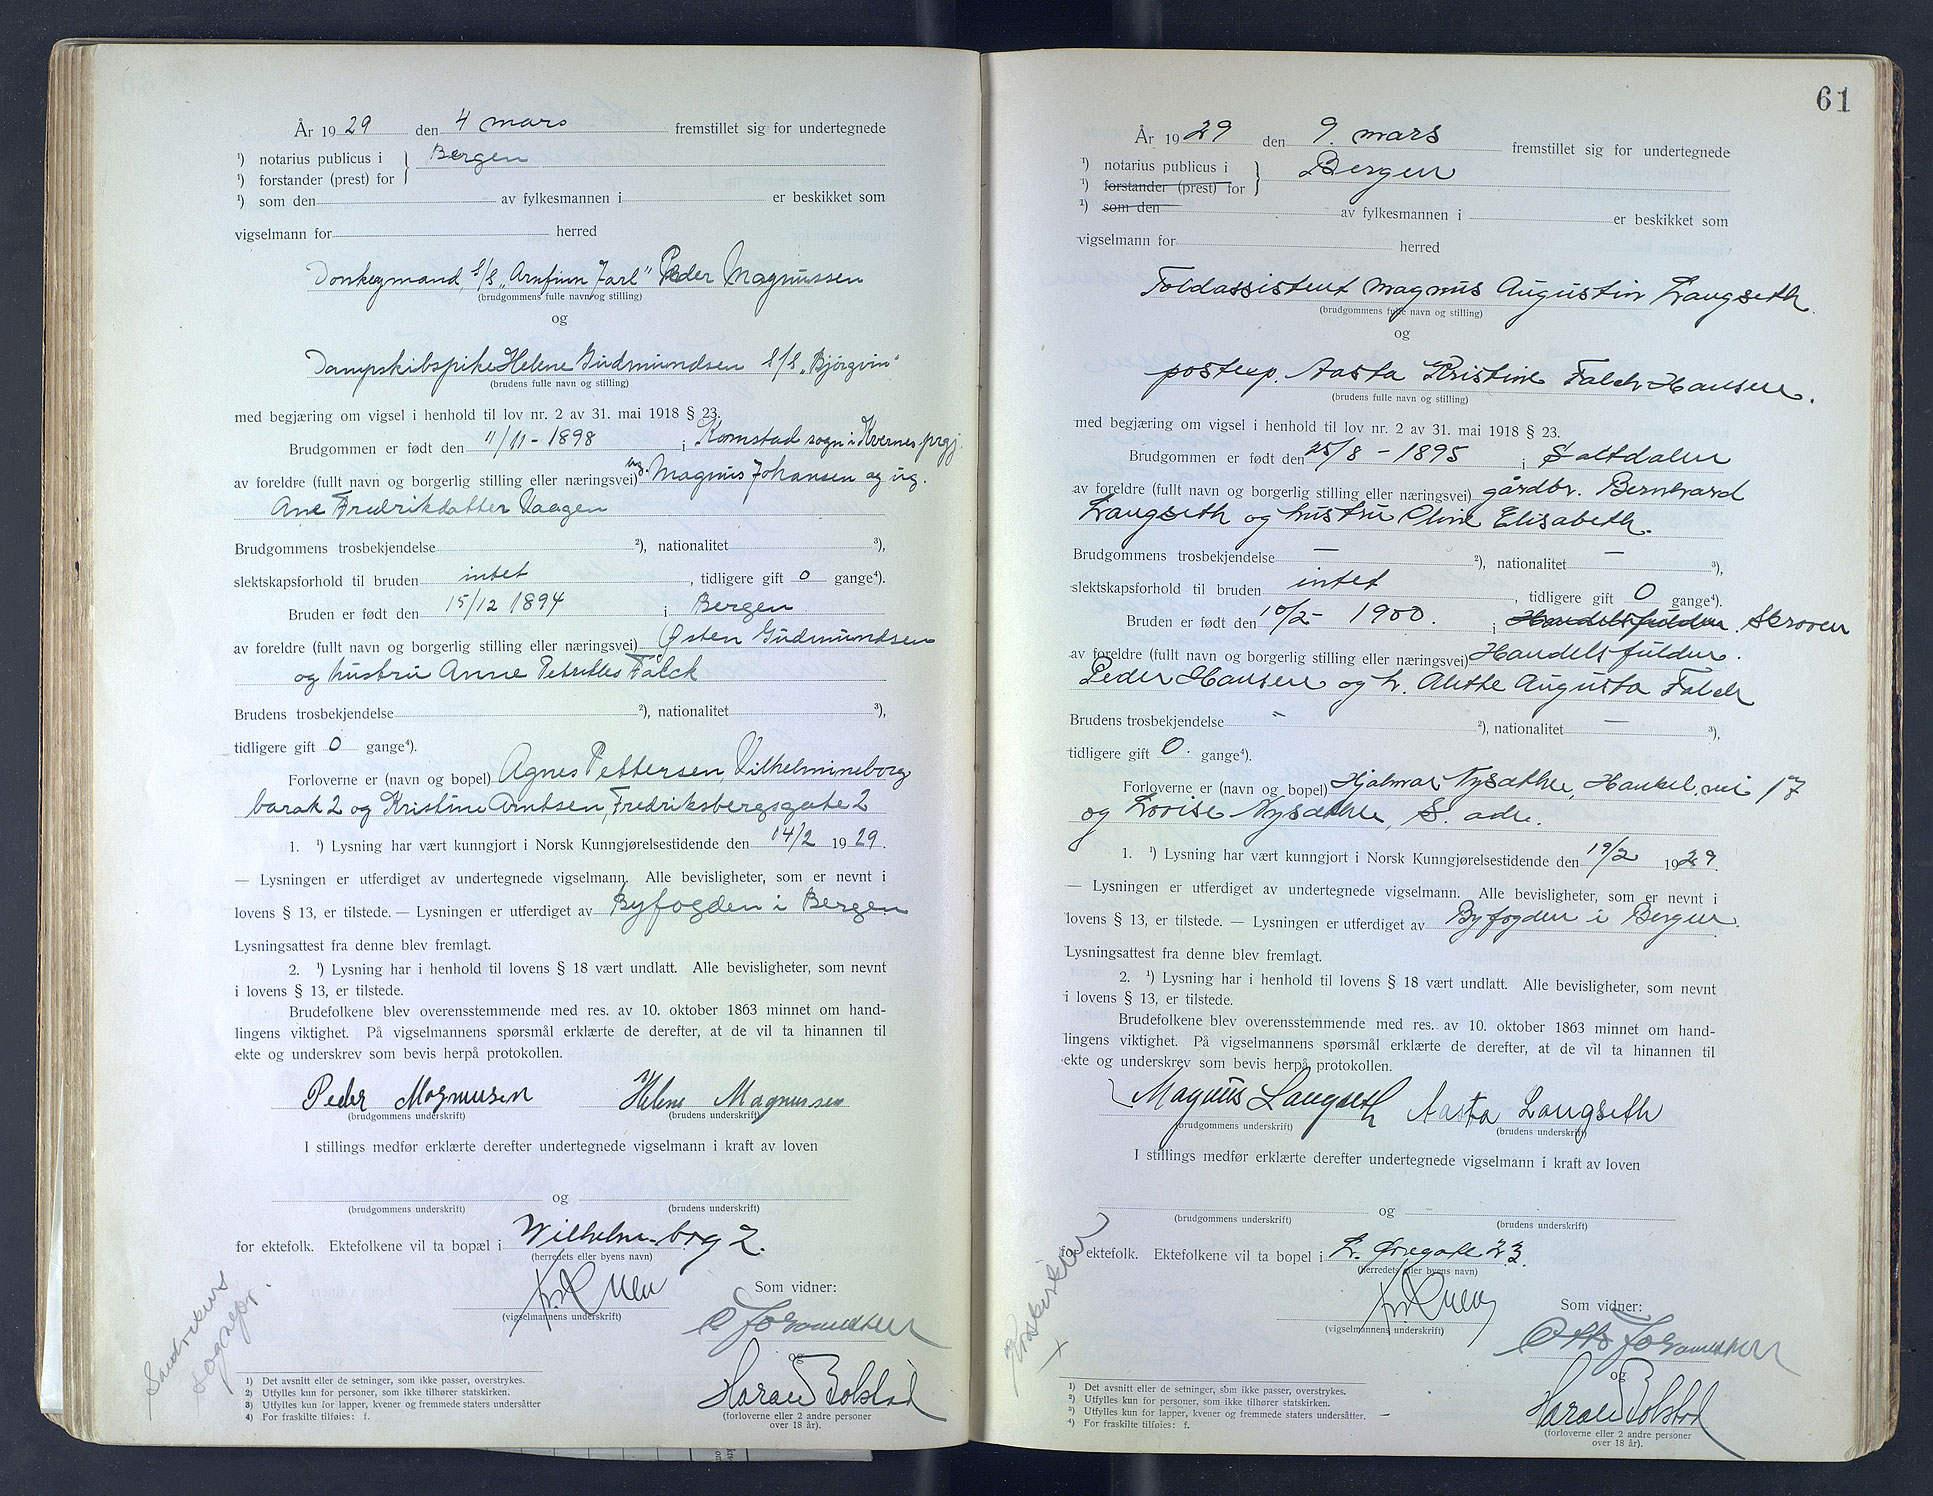 År 1929 den 4 mars fremstillet sig for undertegnede
¹) notarius publicus i } Bergen
¹) forstander (prest) for
¹) som den av fylkesmannen i er beskikket som
vigselmann for herred
Donkeymand, s/s „Arnfinn Jarl" Peder Magnussen
(brudgommens fulle navn og stilling)
og
Dampskibspike Helene Gudmundsen s/s „Bjørgvin"
(brudens fulle navn og stilling)
med begjæring om vigsel i henhold til lov nr. 2 av 31. mai 1918 § 23.
Brudgommen er født den 11/11 - 1898 i Kornstad sogn i Kvernes prgj.
av foreldre (fullt navn og borgerlig stilling eller næringsvei) ug. Magnus Johansen og ug.
Ane Fredrikdatter Vaagen
Brudgommens trosbekjendelse ²), nationalitet ³),
slektskapsforhold til bruden intet, tidligere gift 0 gange⁴).
Bruden er født den 15/12 1894 i Bergen
av foreldre (fullt navn og borgerlig stilling eller næringsvei) Østen Gudmundsen
og hustru Anne Falck
Brudens trosbekjendelse ²), nationalitet ³),
tidligere gift 0 gange⁴).
Forloverne er (navn og bopel) Agnes Pettersen, Vilhelmineborg
barak 2 og Kristine Arntsen, Fredriksbergsgate 2
1. ¹) Lysning har vært kunngjort i Norsk Kunngjørelsestidende den 14/2 1929.
— Lysningen er utferdiget av undertegnede vigselmann. Alle bevisligheter, som er nevnt i
lovens § 13, er tilstede. — Lysningen er utferdiget av Byfogden i Bergen
Lysningsattest fra denne blev fremlagt.
2. ¹) Lysning har i henhold til lovens § 18 vært undlatt. Alle bevisligheter, som nevnt
i lovens § 13, er tilstede.
Brudefolkene blev overensstemmende med res. av 10. oktober 1863 minnet om hand-
lingens viktighet. På vigselmannens spørsmål erklærte de derefter, at de vil ta hinannen til
ekte og underskrev som bevis herpå protokollen.
Peder Magnussen Helene Magnussen
(brudgommens underskrift) (brudens underskrift)
I stillings medfør erklærte derefter undertegnede vigselmann i kraft av loven
og
(brudgommens underskrift) (brudens underskrift)
for ektefolk. Ektefolkene vil ta bopæl i Wilhelm.borg 2.
(herredets eller byens navn)
Som vidner:
(vigselmannens underskrift)
og
Harald Bolstad
(forloverne eller 2 andre personer
over 18 år).
Sandvikens
sognepr.
1) Det avsnitt eller de setninger, som ikke passer, overstrykes.
2) Utfylles kun for personer, som ikke tilhører statskirken.
3) Utfylles kun for lapper, kvener og fremmede staters undersåtter
4) For fraskilte tilføies: f.
61
År 1929 den 9. mars fremstillet sig for undertegnede
¹) notarius publicus i } Bergen
¹) forstander (prest) for
¹) som den av fylkesmannen i er beskikket som
vigselmann for herred
Toldassistent Magnus Augustin Langseth
(brudgommens fulle navn og stilling)
og
postexp. Aasta Kristine Falch-Hansen.
(brudens fulle navn og stilling)
med begjæring om vigsel i henhold til lov nr. 2 av 31. mai 1918 § 23.
Brudgommen er født den 25/8 - 1895 i Saltdalen
av foreldre (fullt navn og borgerlig stilling eller næringsvei) gårdbr. Bernhard
Langseth og hustru Oline Elisabeth.
Brudgommens trosbekjendelse — ²), nationalitet — ³),
slektskapsforhold til bruden intet, tidligere gift 0 gange⁴).
Bruden er født den 10/2 - 1900. i Handelsfuldm. Skroven
av foreldre (fullt navn og borgerlig stilling eller næringsvei) Handelsfuldm.
Peder Hansen og h. Alette Augusta Falch
Brudens trosbekjendelse - ²), nationalitet — ³),
tidligere gift 0. gange⁴).
Forloverne er (navn og bopel) Hjalmar Nysæther, Haukel.vei 17
og Lovise Nysæther, S. adr.
1. ¹) Lysning har vært kunngjort i Norsk Kunngjørelsestidende den 19/2 1929.
— Lysningen er utferdiget av undertegnede vigselmann. Alle bevisligheter, som er nevnt i
lovens § 13, er tilstede. — Lysningen er utferdiget av Byfogden i Bergen.
Lysningsattest fra denne blev fremlagt.
2. ¹) Lysning har i henhold til lovens § 18 vært undlatt. Alle bevisligheter, som nevnt
i lovens § 13, er tilstede.
Brudefolkene blev overensstemmende med res. av 10. oktober 1863 minnet om hand-
lingens viktighet. På vigselmannens spørsmål erklærte de derefter, at de vil ta hinannen til
ekte og underskrev som bevis herpå protokollen.
Magnus Langseth Aasta Langseth
(brudgommens underskrift) (brudens underskrift)
I stillings medfør erklærte derefter undertegnede vigselmann i kraft av loven
og
(brudgommens underskrift) (brudens underskrift)
for ektefolk. Ektefolkene vil ta bopel i L. Øregate 23
(herredets eller byens navn)
Som vidner:
(vigselmannens underskrift)
Otto
og
Harald Bolstad
(forloverne eller 2 andre personer
over 18 år).
Korskirken
x
1) Det avsnitt eller de setninger, som ikke passer, overstrykes.
2) Utfylles kun for personer, som ikke tilhører statskirken.
3) Utfylles kun for lapper, kvener og fremmede staters undersåtter.
4) For fraskilte tilføies: f.